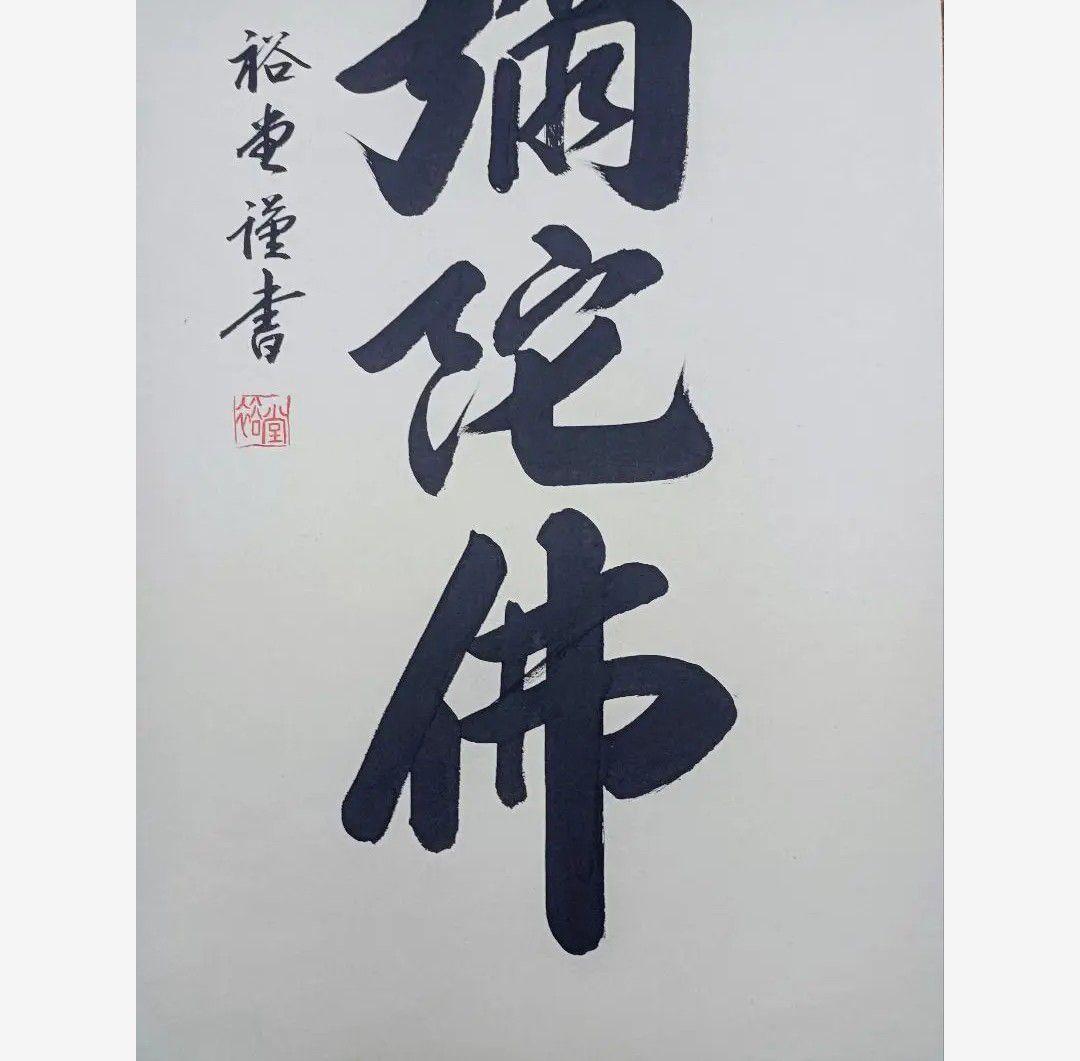 彌陀佛
裕堂謹書
裕堂